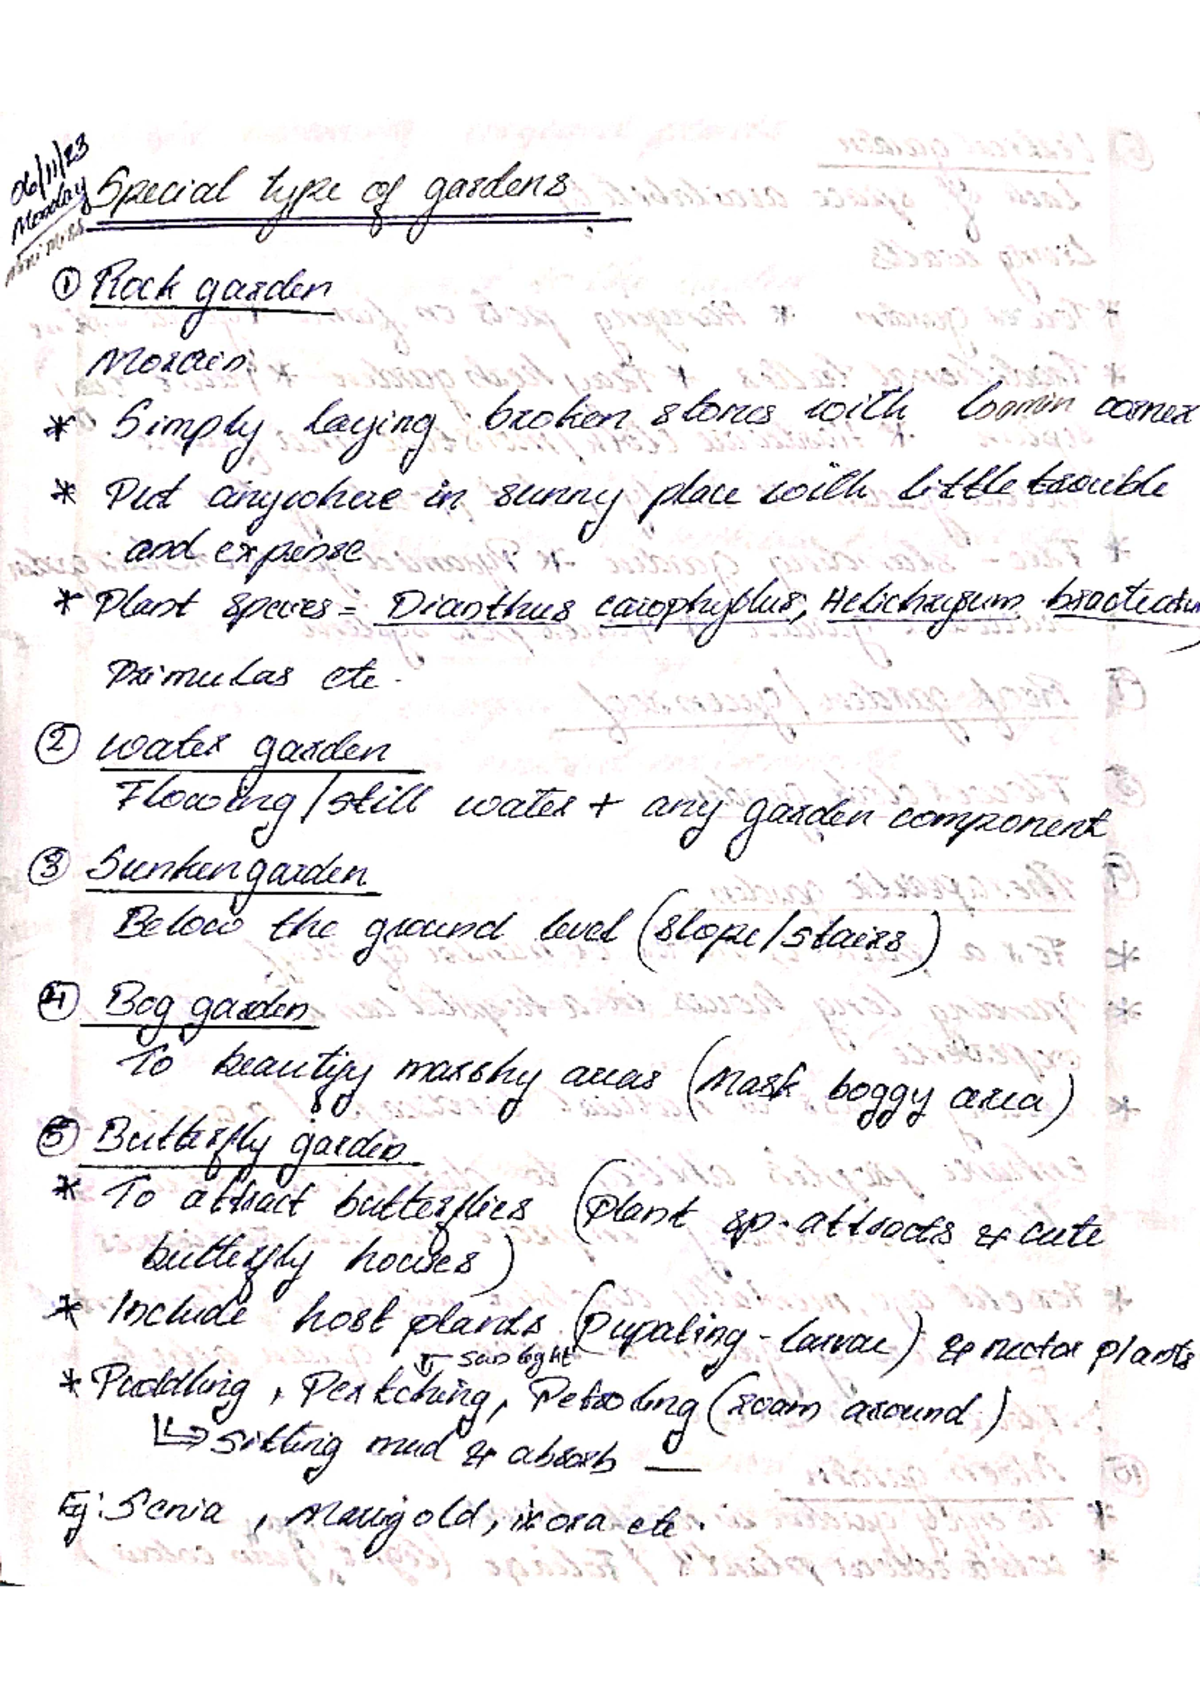 06/11/23
Monday
Special type of gardens
① Rock garden
Morain:
* Simply laying broken stones with loamin corner
* Put anywhere in sunny place with little trouble
and expense
* Plant species = Dianthus carophyllus, Helichrysum bractectum,
Primulas etc.
② water garden
Flowing/still water + any garden component
③ Sunken garden
Below the ground level (slope/stairs)
④ Bog garden
To beautify marshy areas (Mask boggy area)
⑤ Butterfly garden
* To attract butterflies (plant sp. attracts & cute
butterfly houses)
* Include host plants (pupating - larvae) & nector plants
sunlight
* Puddling, Perkching, Petroling (roam around)
sitting mud & absorb
Eg: Senia, Marigold, ixora etc.